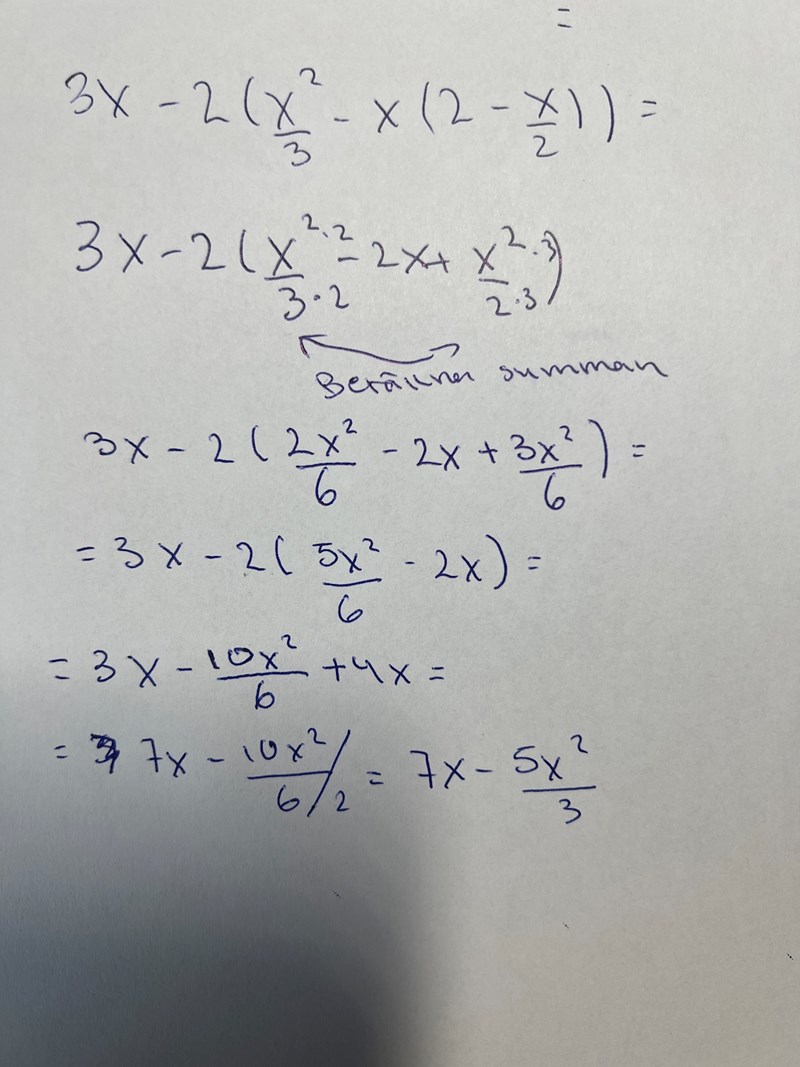 =
3x - 2(x²/3 - x(2 - x/2)) =
3x - 2(x²·2/3·2 - 2x + x²·3/2·3)
Beräkna summan
3x - 2(2x²/6 - 2x + 3x²/6) =
= 3x - 2(5x²/6 - 2x) =
= 3x - 10x²/6 + 4x =
= 7x - 10x²/6/2 = 7x - 5x²/3